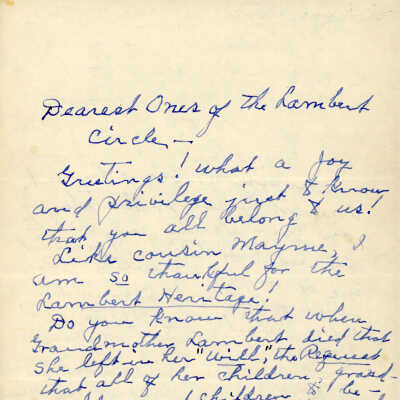 Dearest Ones of the Lambert
Circle —
Greetings! What a joy
and privilege just to know
that you all belong to us!
Like cousin Mayme, I
am so thankful for the
Lambert Heritage!
Do you know that when
Grandmother Lambert died that
she left in her "Will", the Request
that all of her children, grand-
children to be-